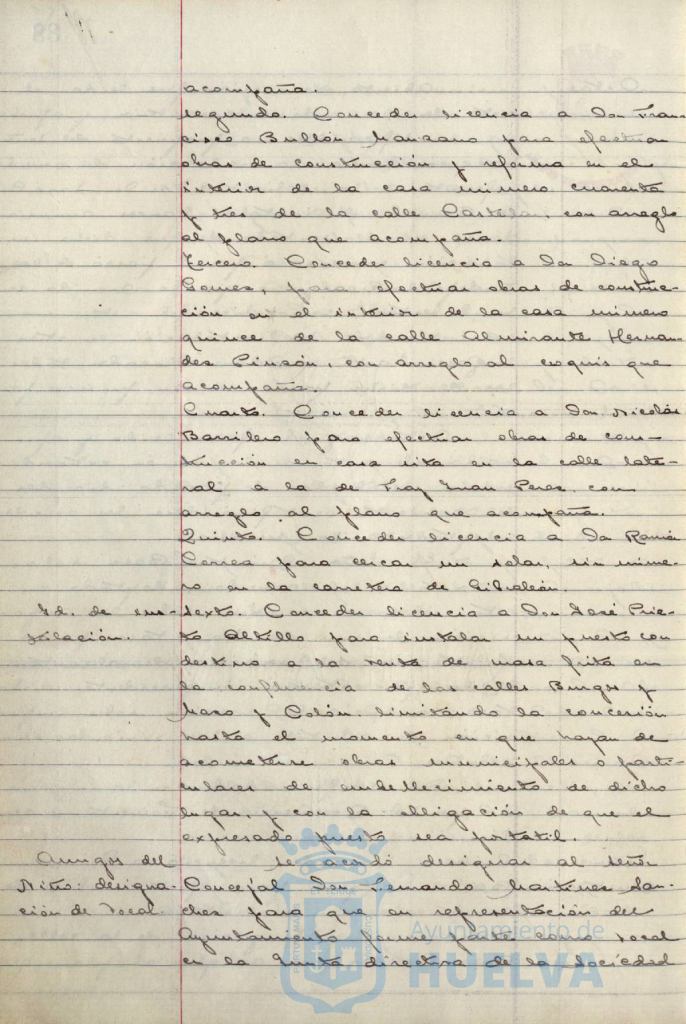 acompaña.
Segundo. Conceder licencia a Don Fran-
cisco Bullón Manzano para efectuar
obras de construcción y reforma en el
interior de la casa número cuarenta
y tres de la calle Castelar, con arreglo
al plano que acompaña.
Tercero. Conceder licencia a Don Diego
Gomez, para efectuar obras de construc-
ción en el interior de la casa número
quince de la calle Almirante Hernan-
dez Pinzón, con arreglo al croquis que
acompaña.
Cuarto. Conceder licencia a Don Nicolás
Barrilero para efectuar obras de cons-
trucción en casa sita en la calle late-
ral a la de Fray Juan Perez con
arreglo al plano que acompaña.
Quinto. Conceder licencia a Don Ramón
Correa para cercar un solar, sin núme-
ro en la carretera de Gibraleón.
Id. de ins- Sexto. Conceder licencia a Don José Prie-
talación. to Altillo para instalar un puesto con
destino a la venta de masa frita en
la confluencia de las calles Burgos y
Mazo y Colón, limitando la concesión
hasta el momento en que hayan de
acometerse obras municipales o parti-
culares de embellecimiento de dicho
lugar, y con la obligación de que el
expresado puesto sea portatil.
Amigos del Se acordó designar al señor
Niño: designa- Concejal Don Fernando Martinez San-
ción de Vocal. chez para que en representación del
Ayuntamiento forme parte como Vocal
en la Junta directiva de la Sociedad
Ayuntamiento de
HUELVA